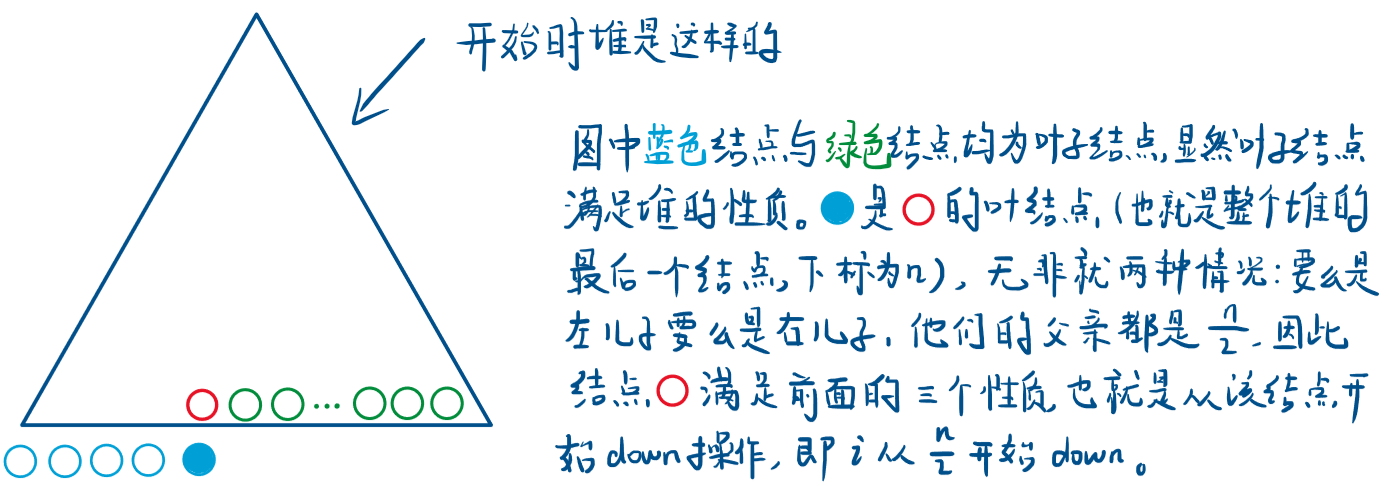 开始时堆是这样的
图中蓝色结点与绿色结点,均为叶子结点,显然叶子结点
满足堆的性质。是的叶结点,(也就是整个堆的
最后一个结点,下标为n),无非就两种情况:要么是
左儿子要么是右儿子,他们的父亲都是n/2.因此
结点满足前面的三个性质,也就是从该结点开
始down操作,即i从n/2开始down。